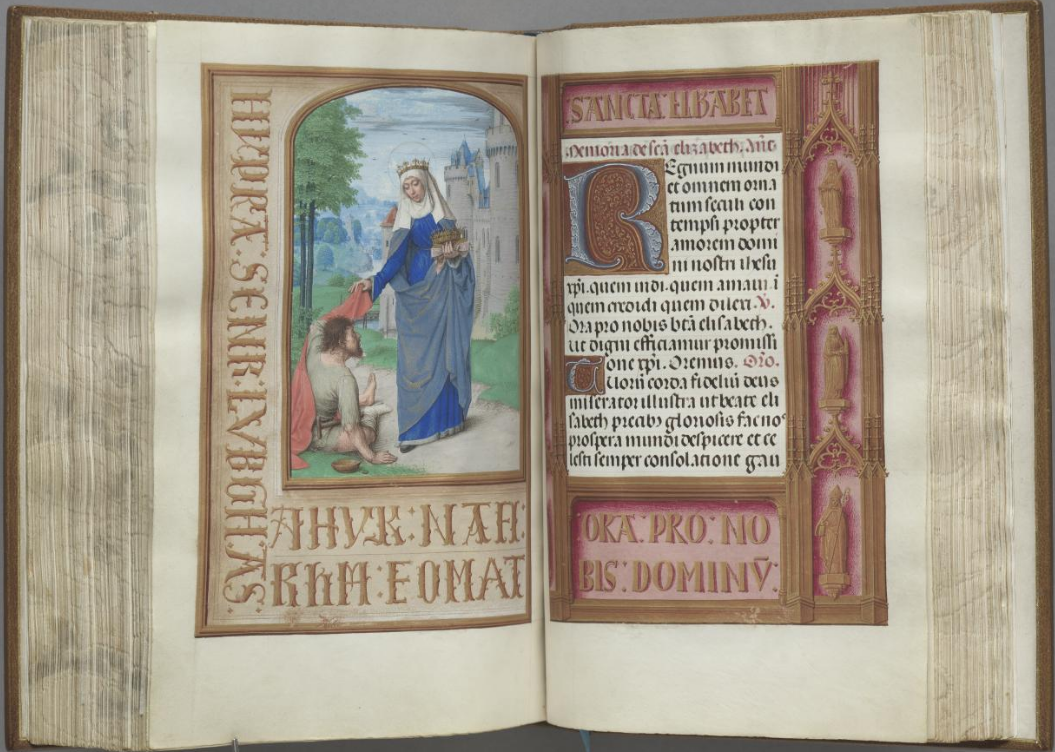 AHVK : NAH :
RHM : EOMAT
SANCTA ELISABET
Memoria de scā elizabeth. Añt.
Regnum mundi
et omnem orna
tum seculi con
tempsi propter
amorem domi
ni nostri ihesu
xp̄i. quem vidi. quem amavi. ī
quem credidi quem dilexi. V.
Ora pro nobis bēa elisabeth.
ut digni efficiamur promissi
one xp̄i. Oremus. Orō.
Tuorū corda fideliū deus
miserator illustra ut beate eli
sabeth precibꝫ gloriosis fac nos
prospera mundi despicere et ce
lesti semper consolatione gau
ORA : PRO : NO
BIS : DOMINV̄ :